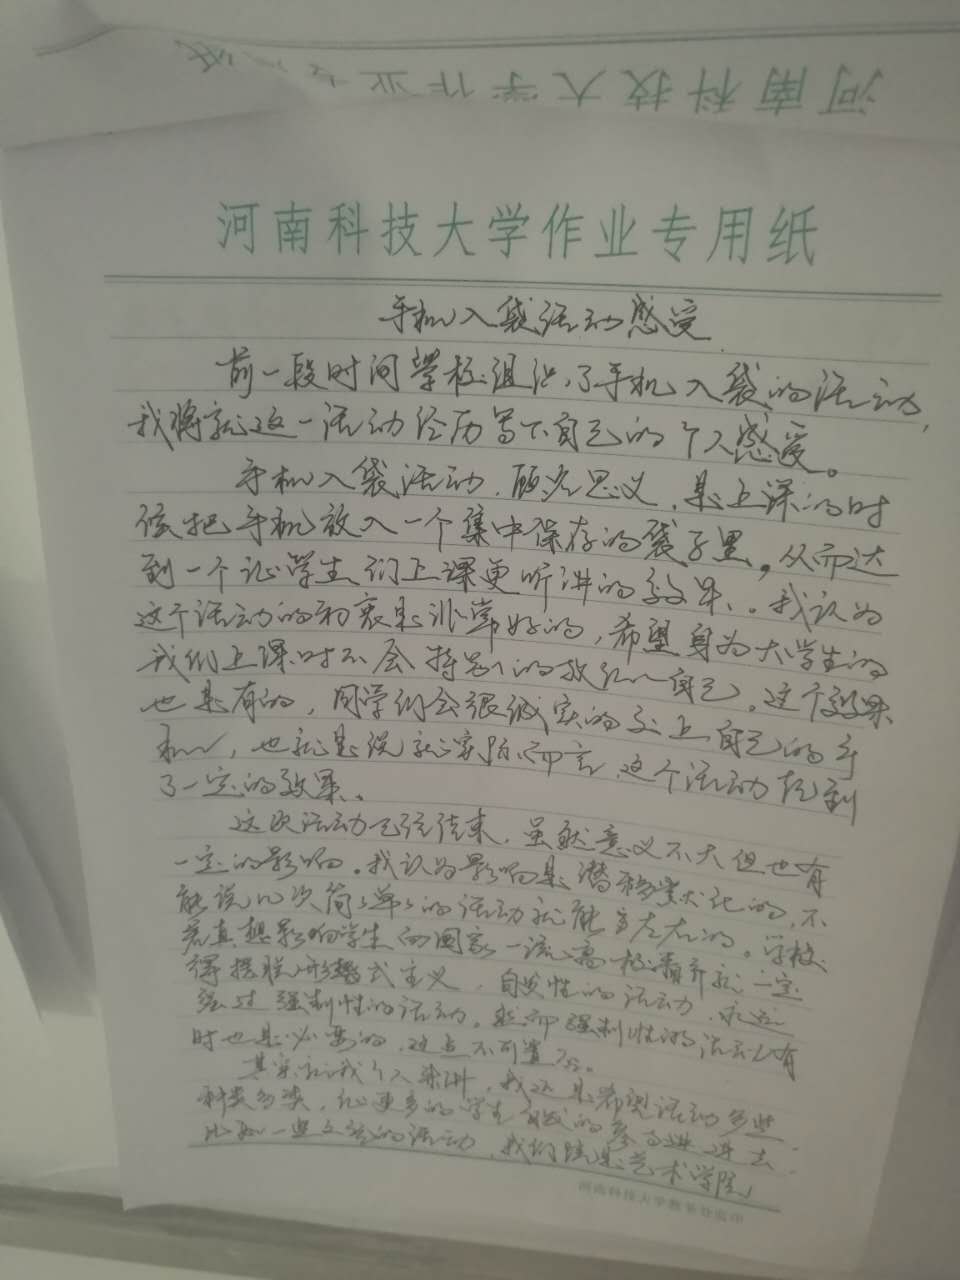 河南科技大学作业专用纸
河南科技大学作业专用纸
手机入袋活动感受
前一段时间学校组织了手机入袋的活动,
我将就这一活动经历写下自己的个人感受。
手机入袋活动,顾名思义,是上课的时
候把手机放入一个集中保存的袋子里,从而达
到一个让学生们上课更听讲的效果。我认为
这个活动的初衷是非常好的,希望身为大学生的
我们上课时不会特别的放纵自己。这个效果
也是有的,同学们会很诚实的交上自己的手
机,也就是说就实际而言,这个活动起到
了一定的效果。
这次活动已经结束,虽然意义不大但也有
一定的影响。我认为影响是潜移默化的,不
能说几次简单的活动就能左右的。学校
若真想影响学生向国家一流高校看齐就一定
得摆脱形式主义,自发性的活动,永远
经过强制性的活动。然而强制性的活动有
时也是必要的,这点不可置否。
其实就我个人来讲,我还是希望活动多些
种类多类,让更多的学生自发的参与进去,
比如一些文艺的活动,我们院是艺术学院
河南科技大学教务处监印